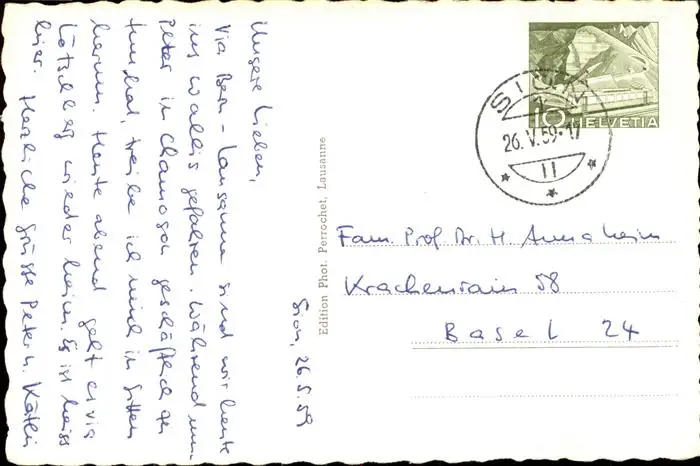 Sion, 26.5.59
Unsere Lieben,
Via Bern - Lausanne sind wir heute
ins Wallis gefahren. Während nun
Peter in Chamoson geschäftlich zu
tun hat, treibe ich mich in Sitten
herum. Heute abend geht es via
Lötschberg wieder heim. Es ist heiss
hier. Herzliche Grüsse Peter u. Käthi
Edition Phot. Perrochet, Lausanne
10 HELVETIA
SION
1
26.V.59-17
11
Fam. Prof. Dr. H. Annaheim
Krachenrain 58
Basel 24